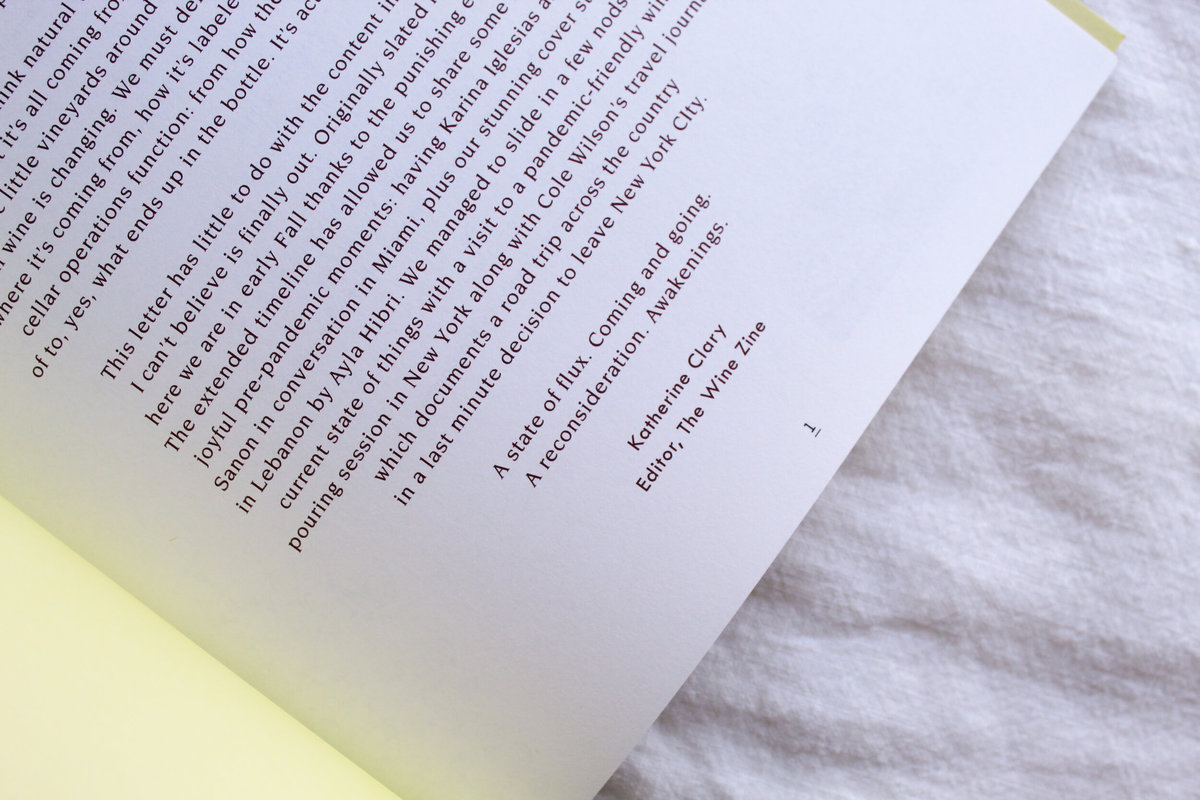 ink natural
it's all coming fro
little vineyards around
wine is changing. We must de
where it's coming from, how it's labele
cellar operations function: from how the
of to, yes, what ends up in the bottle. It's ac
This letter has little to do with the content i
I can't believe is finally out. Originally slated
here we are in early Fall thanks to the punishing e
The extended timeline has allowed us to share some
joyful pre-pandemic moments: having Karina Iglesias a
Sanon in conversation in Miami, plus our stunning cover s
in Lebanon by Ayla Hibri. We managed to slide in a few nods
current state of things with a visit to a pandemic-friendly win
pouring session in New York along with Cole Wilson's travel journ
which documents a road trip across the country
in a last minute decision to leave New York City.
A state of flux. Coming and going.
A reconsideration. Awakenings.
Katherine Clary
Editor, The Wine Zine
1